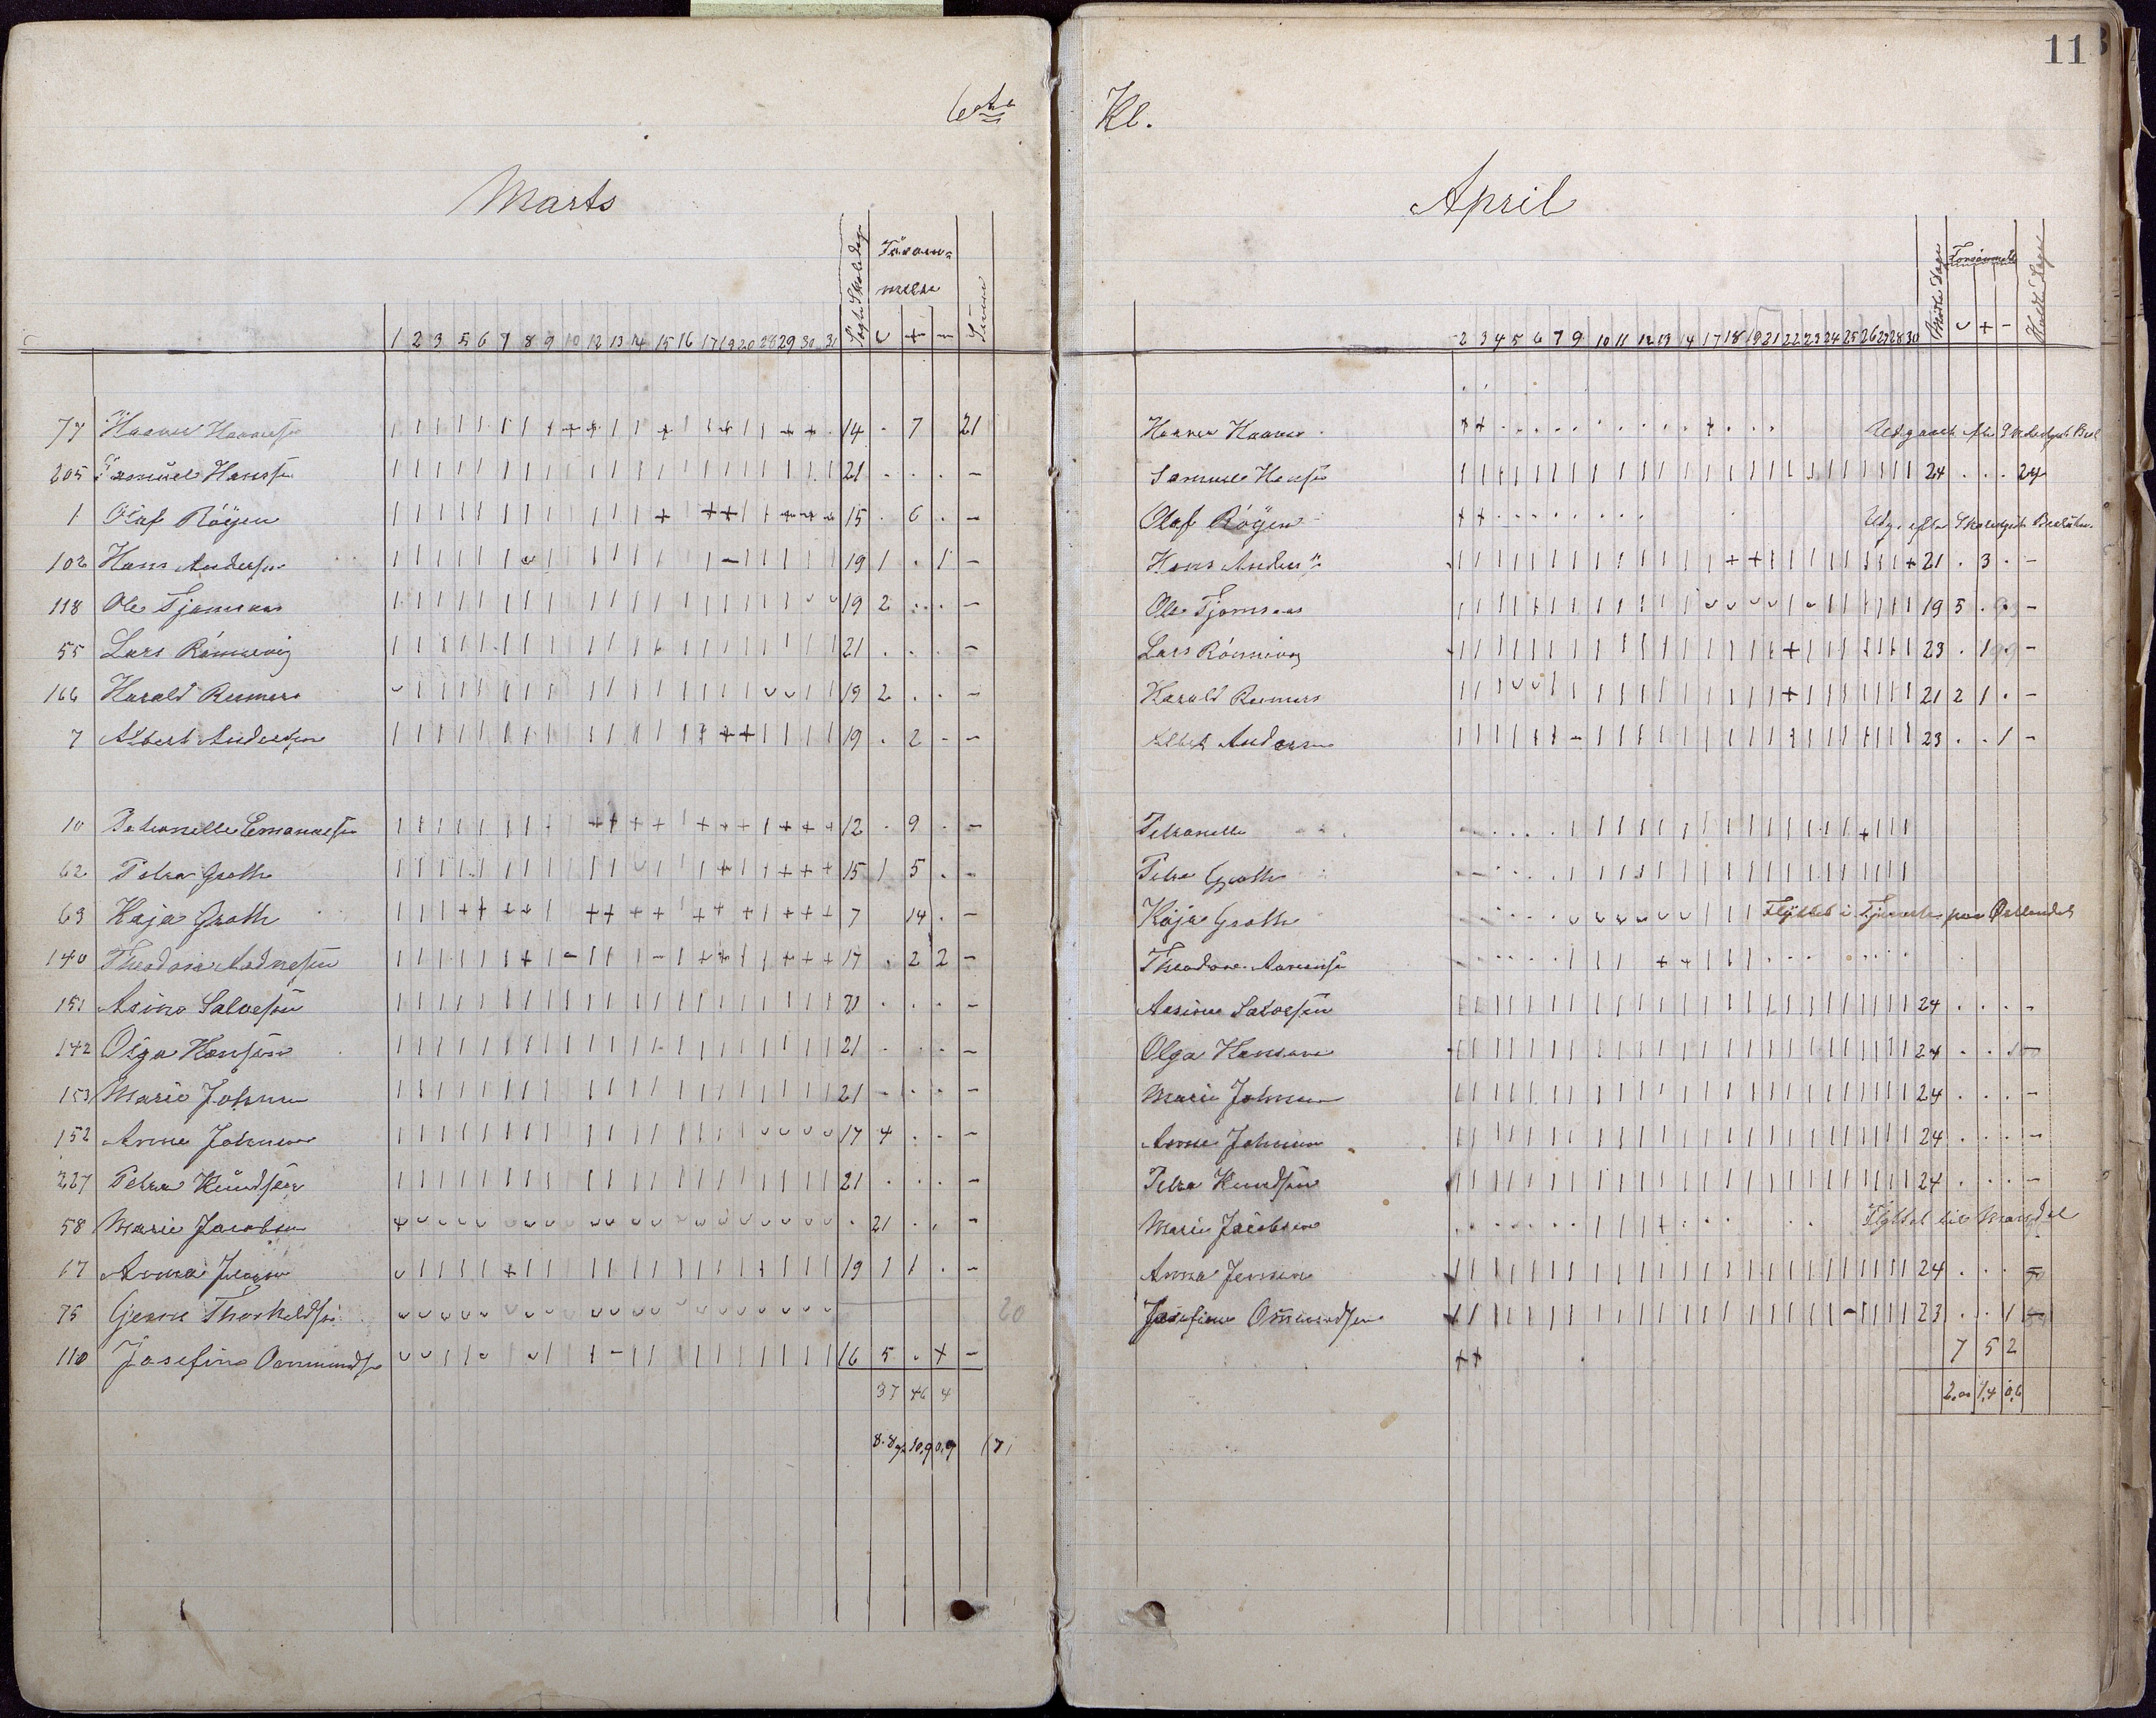 11
6te Kl.
Marts
Søgte Skoledage Forsøm-
melse Summa
1 2 3 5 6 7 8 9 10 12 13 14 15 16 17 19 20 28 29 30 31 ᴗ + —
77 14 . 7 21
205 Samuel Hansen 21 . . . —
1 Olaf Röyen 15 . 6 . —
102 Hans Andersen 19 1 . 1 —
118 Ole Tjomsaas 19 2 . . —
55 Lars Rönnevig 21 . . . —
166 Harald Reimers 19 2 . . —
7 Albert Andersen 19 . 2 - —
10 Petronelle Emanuelsen 12 . 9 . —
62 Petra Groth 15 1 5 . —
63 Kaja Groth 7 14 . —
140 Theodora 17 . 2 2 —
151 Asine Salvesen 21 . . . —
142 Olga Hansen 21 . . . —
153 Marie Johnsen 21 . . . —
152 Anne Johnsen 17 4 . . —
227 Petra Knudsen 21 . . . —
58 Marie Jacobsen . 21 . . —
17 Anna Jensen 19 1 1 . —
75 Thorkeldsen 20
110 Josefine Osmundsen 16 5 . + —
37 46 4
April
Mødte Dage Forsømmelse Holdte Dage
2 3 4 5 6 7 9 10 11 12 13 14 17 18 19 21 22 23 24 25 26 27 28 30 ᴗ + -
Samuel Hansen 24 . . . 24
Olaf Röyen Udg. efter Skolestyrets Beslutn.
Hans Anders 21 . 3 . —
Ole Tjomsaas 19 5 . . —
Lars Rönnevig 23 . 1 . —
Harald Reimers 21 2 1 . —
Albert Andersen 23 . . 1 —
Petronelle
Petra Groth
Kaja Groth Flyttet i Tjeneste paa Østlandet
Theodora
Asine Salvesen 24 . . . —
Olga Hansen 24 . .
Marie Johnsen 24 . . . —
Anne Johnsen 24 . . . —
Petra Knudsen 24 . . . —
Marie Jacobsen Flyttet til Mandal
Anna Jensen 24 . . .
Josefine Osmundsen 23 . . 1
7 5 2
2,00 1,4 0,6